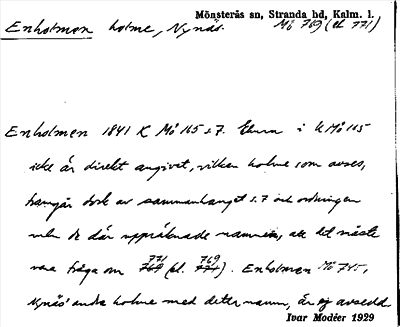 Mönsterås sn, Stranda hd, Kalm. l.
Enholmen holme, Nynäs. Mö 769 (el. 771)
Enholmen 1841 K Mö 165 s 7. Ehuru i K Mö 165
icke är direkt angivet, vilken holme som avses,
framgår dock av sammanhanget s. 7 och ordningen
mellan de där uppräknade namnen, att det måste
771 769
vara fråga om 769 (el. 771). Enholmen Mö 745,
Nynäs' andra holme med detta namn, är ej avsedd
Ivar Modéer 1929